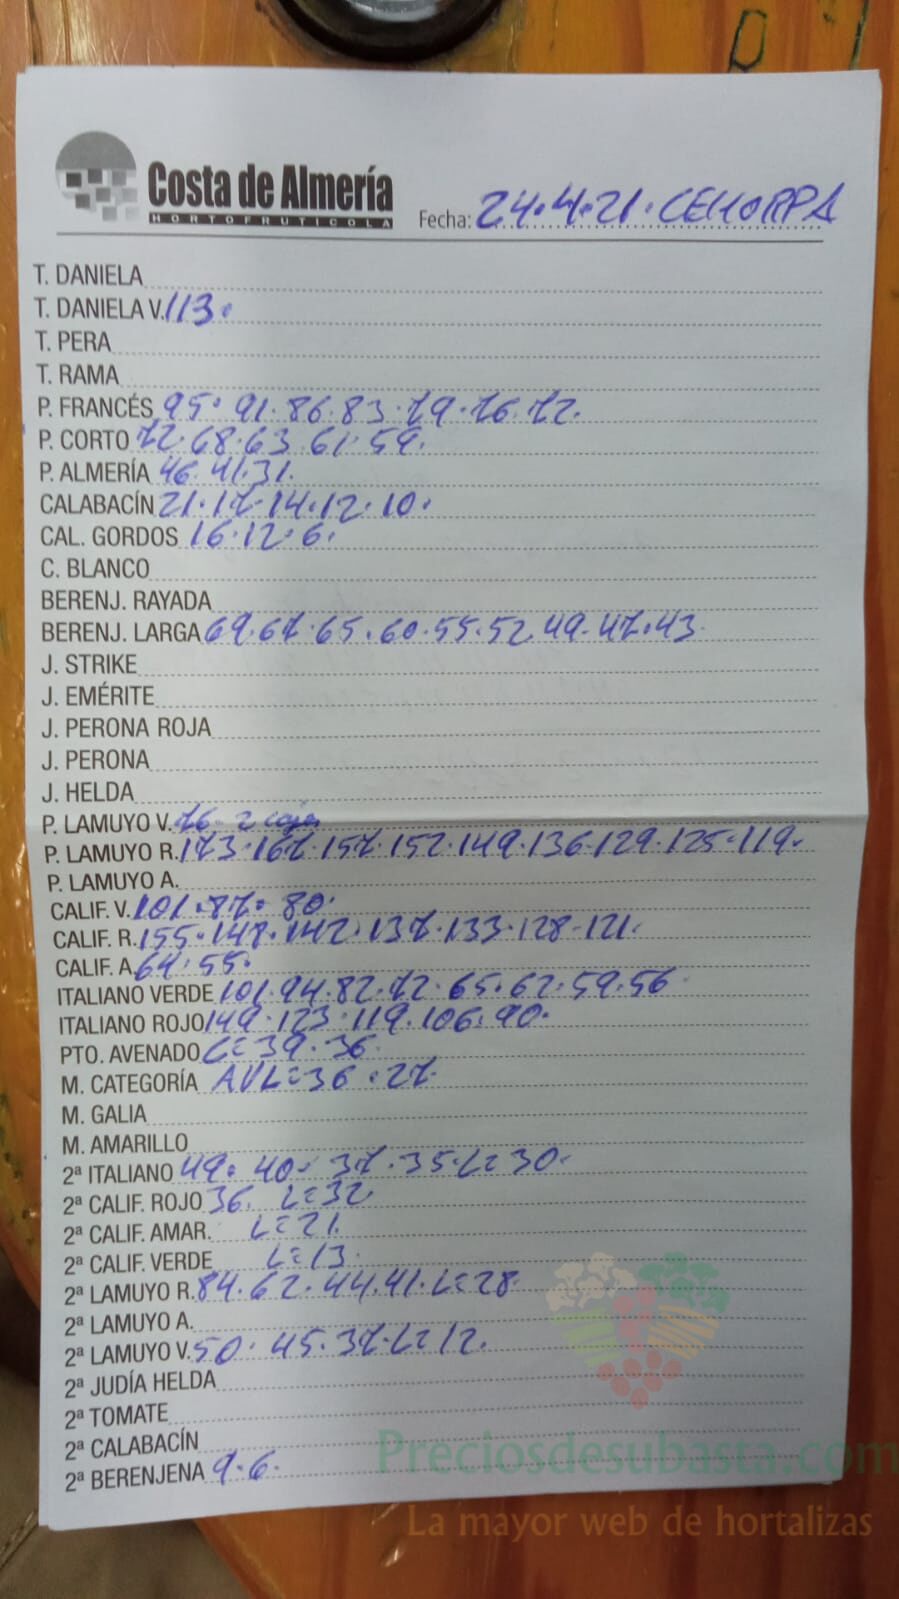 Costa de Almería
HORTOFRUTICOLA
Fecha: 24.4.21. CEHORPA
T. DANIELA
T. DANIELA V. 113.
T. PERA
T. RAMA
P. FRANCÉS 95. 91. 86. 83. 79. 76. 72.
P. CORTO 72. 68. 63. 61. 59.
P. ALMERÍA 46. 41. 31.
CALABACÍN 21. 17. 14. 12. 10.
CAL. GORDOS 16. 12. 6.
C. BLANCO
BERENJ. RAYADA
BERENJ. LARGA 69. 67. 65. 60. 55. 52. 49. 47. 43.
J. STRIKE
J. EMÉRITE
J. PERONA ROJA
J. PERONA
J. HELDA
P. LAMUYO V. 76- 2 cajas
P. LAMUYO R. 173. 167. 157. 152. 149. 136. 129. 125. 119.
P. LAMUYO A.
CALIF. V. 101. 87. 80.
CALIF. R. 155. 148. 142. 137. 133. 128. 121.
CALIF. A. 64. 55.
ITALIANO VERDE 101. 94. 82. 72. 65. 62. 59. 56
ITALIANO ROJO 149. 123. 119. 106. 90.
PTO. AVENADO L= 39. 36.
M. CATEGORÍA AVL= 36. 27.
M. GALIA
M. AMARILLO
2ª ITALIANO 49. 40. 37. 35. L= 30.
2ª CALIF. ROJO 36. L= 32.
2ª CALIF. AMAR. L= 21.
2ª CALIF. VERDE L= 13.
2ª LAMUYO R. 84. 62. 44. 41. L= 28.
2ª LAMUYO A.
2ª LAMUYO V. 50. 45. 37. L= 12.
2ª JUDÍA HELDA
2ª TOMATE
2ª CALABACÍN
2ª BERENJENA 9. 6.
Preciosdesubasta.com
La mayor web de hortalizas